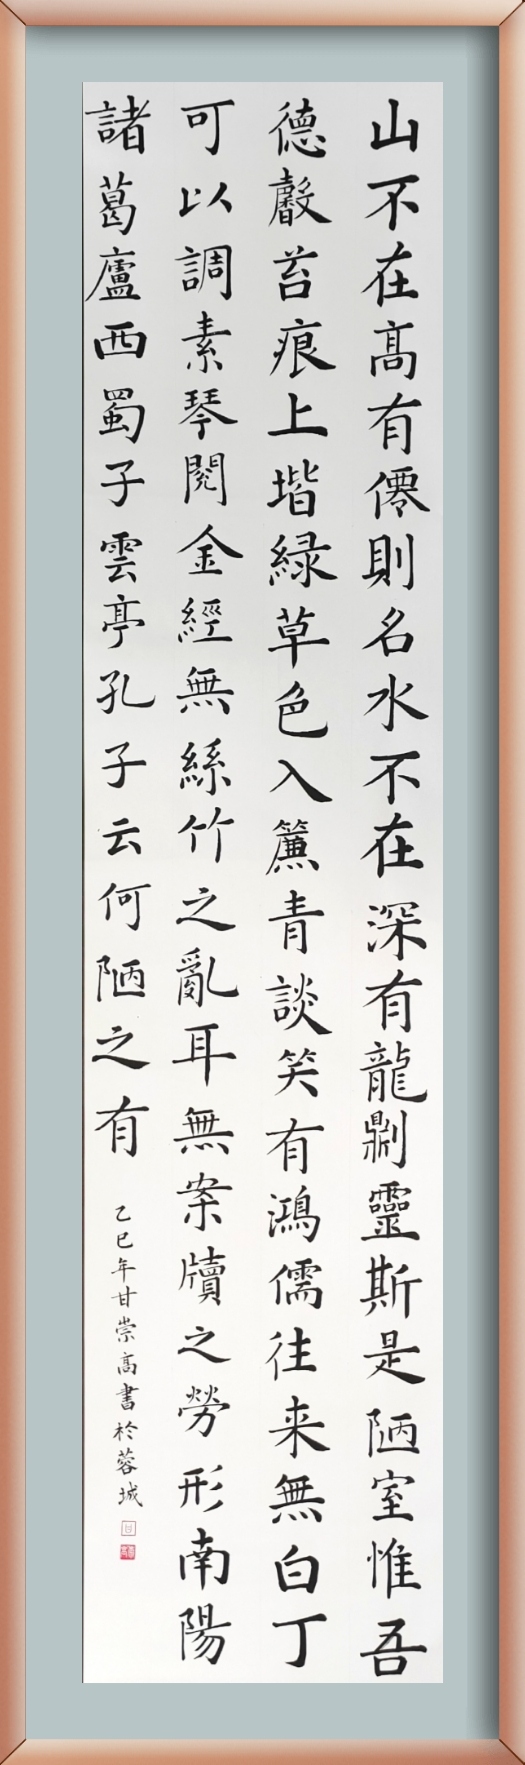 山不在高有僊則名水不在深有龍劘靈斯是陋室惟吾
德馨苔痕上堦緑草色入簾青談笑有鴻儒往来無白丁
可以調素琴閲金經無絲竹之亂耳無案牘之勞形南陽
諸葛廬西蜀子雲亭孔子云何陋之有
乙巳年甘崇高書於蓉城